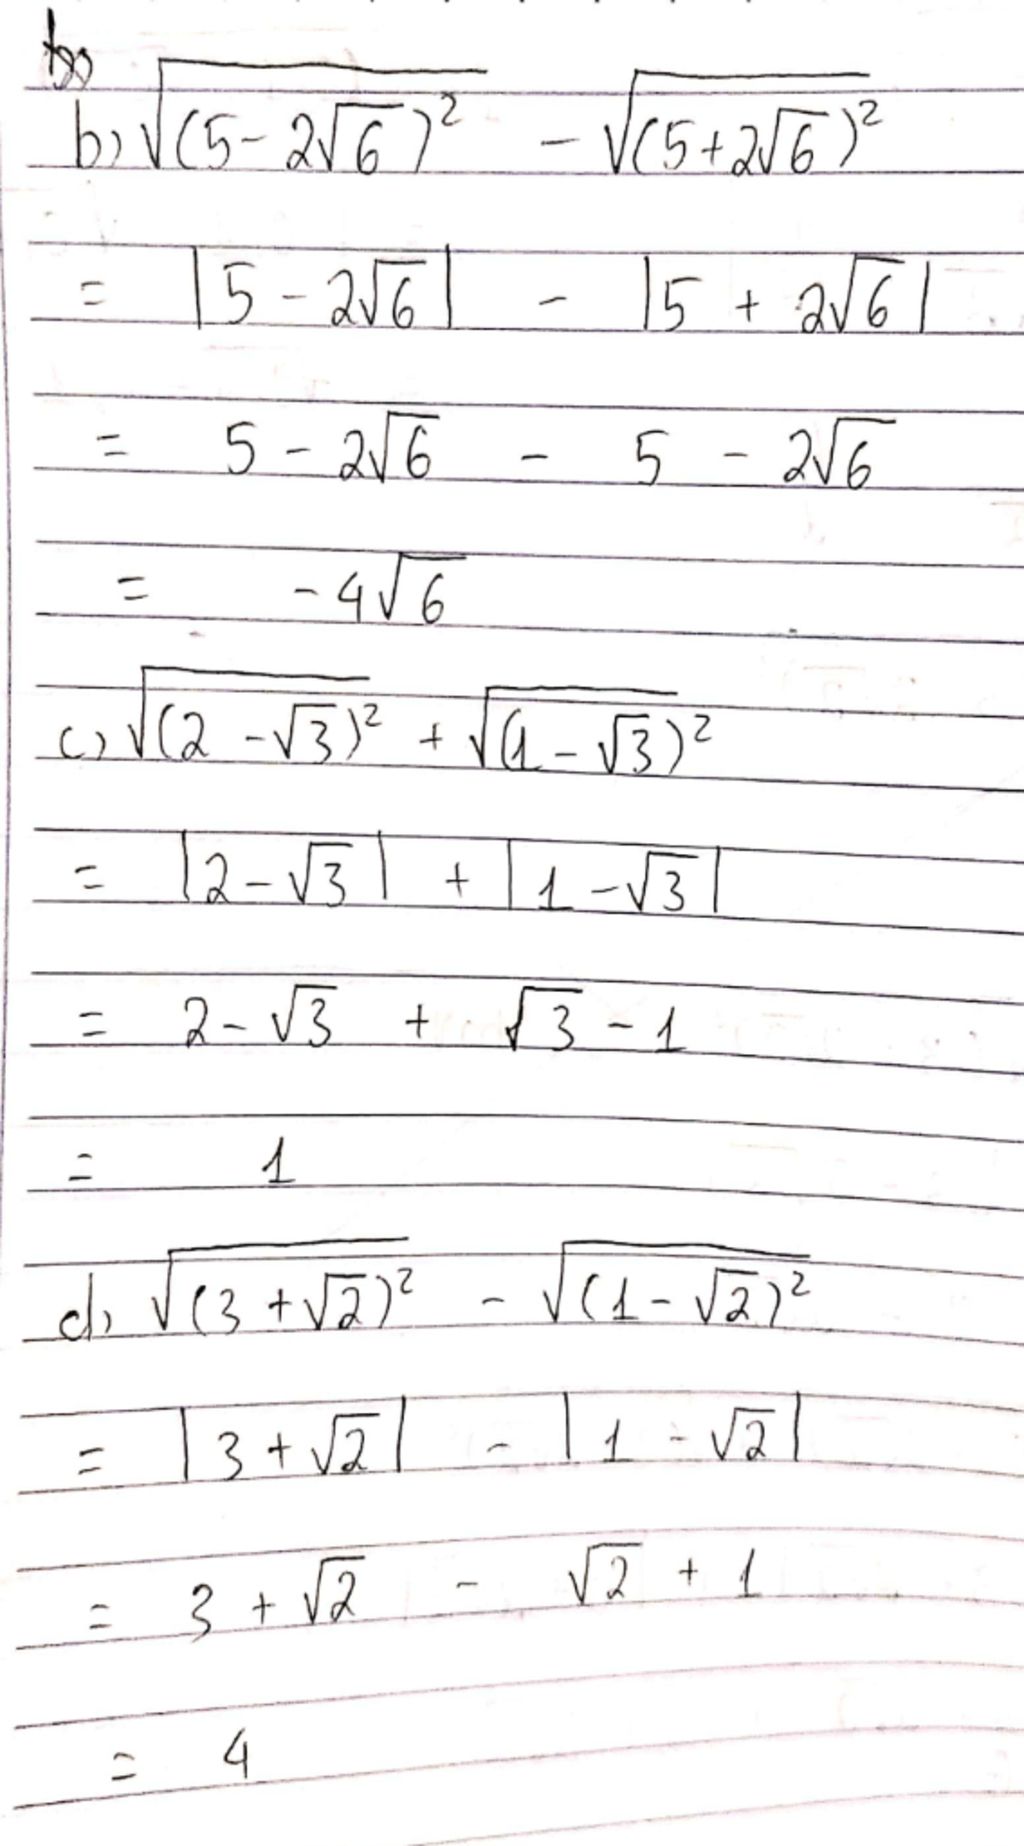 b) √(5-2√6)² - √(5+2√6)²
= |5-2√6| - |5+2√6|
= 5-2√6 - 5 - 2√6
= -4√6
c) √(2-√3)² + √(1-√3)²
= |2-√3| + |1-√3|
= 2-√3 + √3-1
= 1
d) √(3+√2)² - √(1-√2)²
= |3+√2| - |1-√2|
= 3+√2 - √2+1
= 4